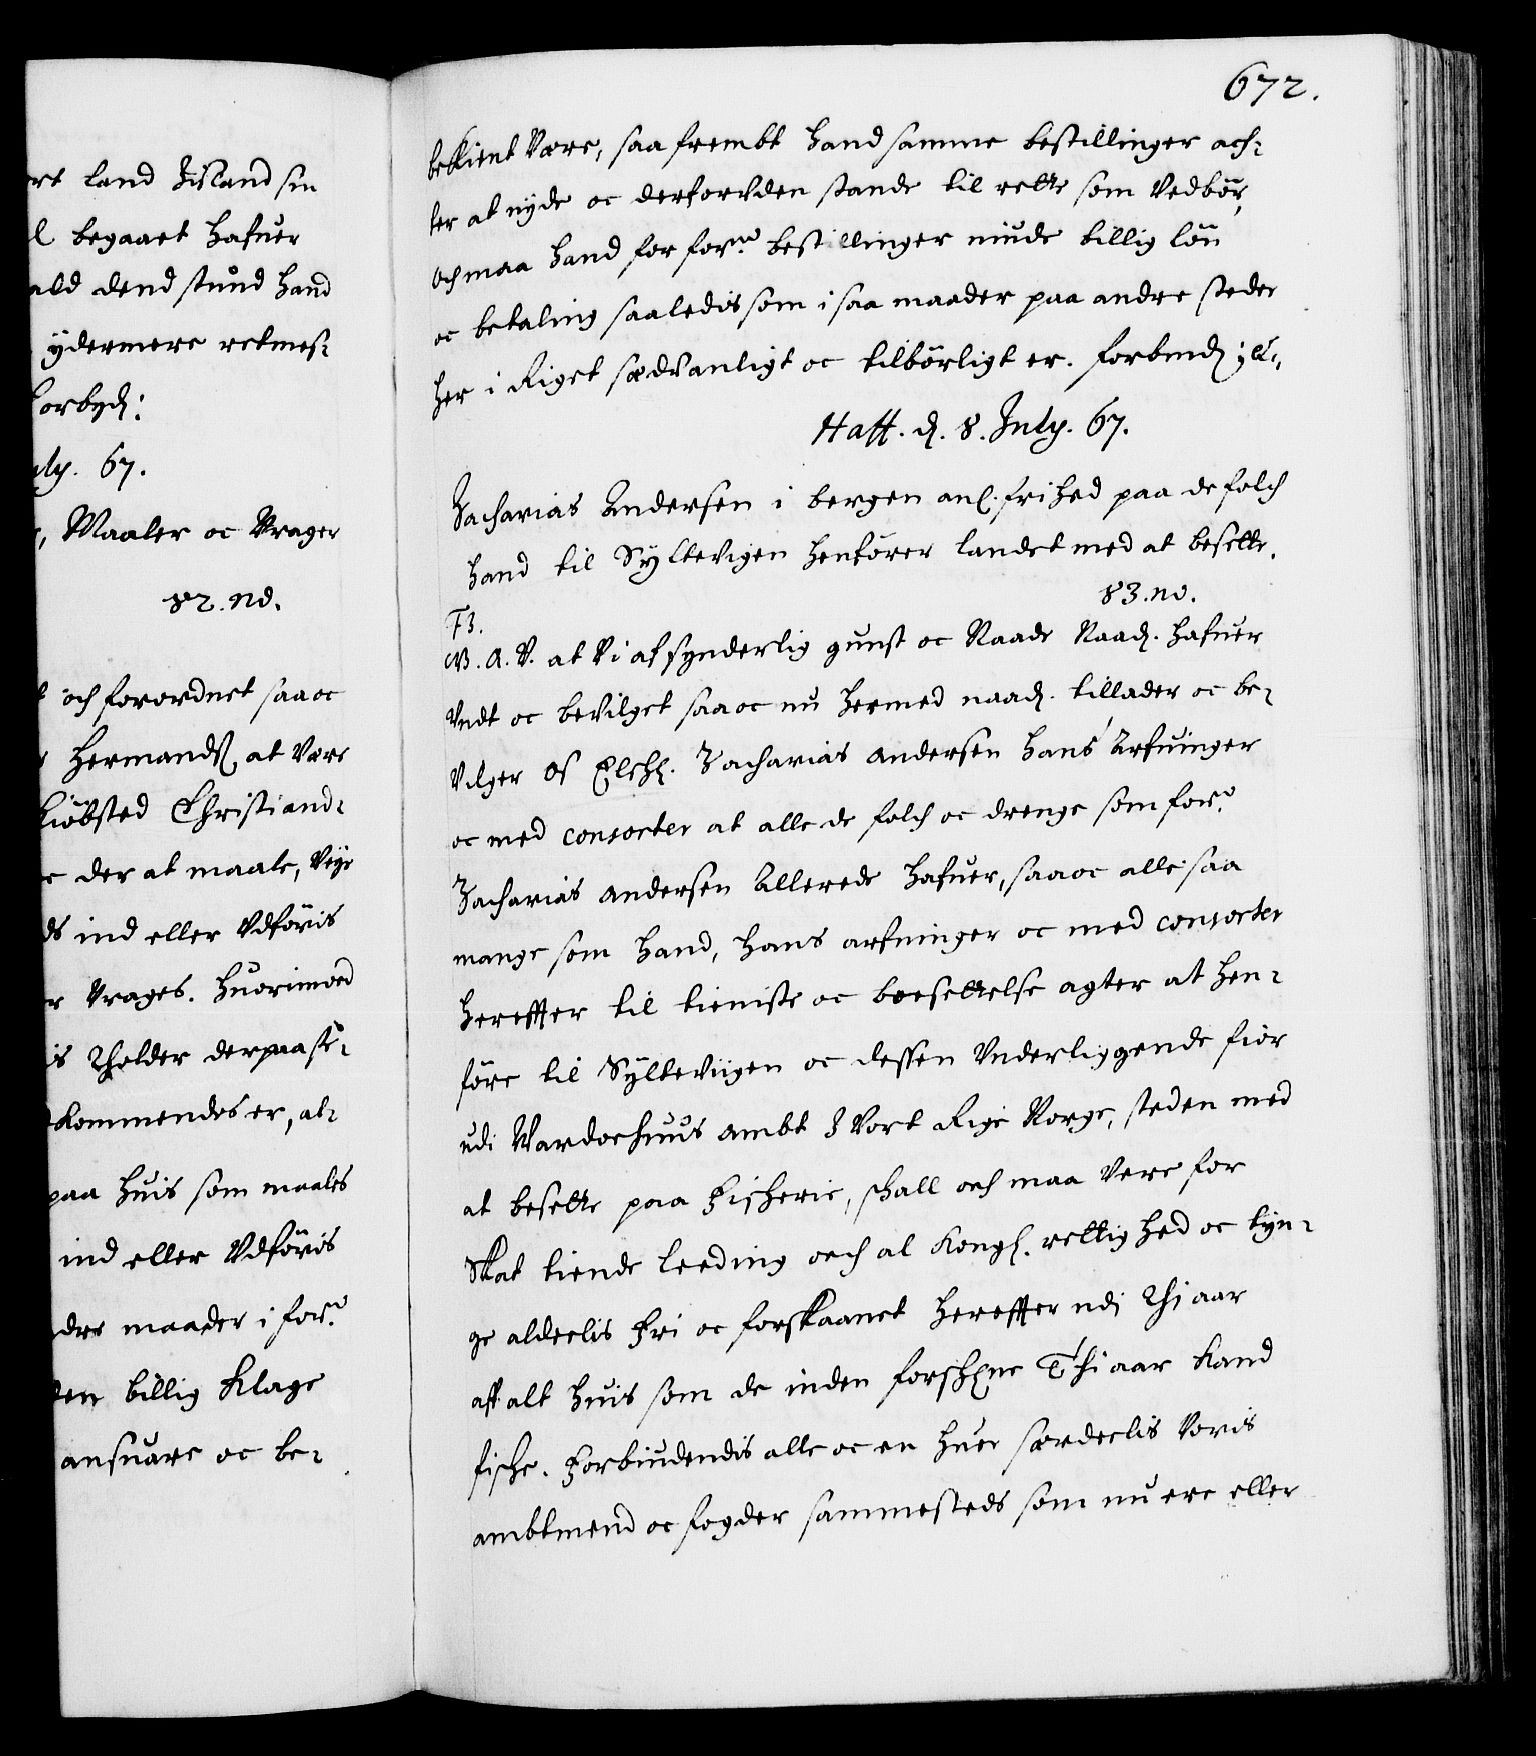 ort land Iisland sin
l begaaet hafuer
ald dend stund hand
ydermere retmes-
orbyd:
uly. 67.
, Maaler oc Wrager
82. no.
och forordnet saa oc
Hermands, at være
Kiöbsted Christiand-
der at maale, Veye
ds ind eller Udföris
r Vrages. Huorimod
is Tholder derpaa se-
kommendes er, at-
paa huis som maales
ind eller Udföris
dre maader i forne
den billig Klage
ansuare oc be-
672.
bekient være, saa frembt hand samme bestillinger ach-
ter at nyde oc derforuden stande til rette som Vedbör,
Och maa hand for forne bestillinger niude billig lön
oc betaling saaledis som i saa maader paa andre steder
her i Riget sædvanligt oc tilbörligt er. forbiud: etc.
Haff. d. 8. July. 67.
Zacharias Andersen i bergen anl. frihed paa de folch
hand til Syltevigen henförer landet med at besette.
83. no.
F3.
G. A. V. at Vi af synderlig gunst oc Naade Naad. hafuer
Undt oc bevilget saa oc nu hermed naad. tillader oc be-
vilger os Elschl. Zacharias Andersen hans Arfuinger
oc med consorter at alle de folch oc drenge som forne
Zacharias Andersen Allerede hafuer, saa oc alle saa
mange som hand, hans arfuinger oc med consorter
hereffter til tieniste oc boesettelse agter at hen-
före til Syltevigen oc dessen Underliggende fiör
udi Wardoehuus Ambt I Vort Rige Norge, steden med
at besette paa Fischerie, schall och maa Vere for
Skat tiende leeding och al Kongl. rettighed oc tyn-
ge aldeelis Fri oc forskaanet hereffter udj Thi aar
aff alt huis som de inden forschrne Thi aar Kand
fische. Forbiudendis alle oc en huer særdeelis Voris
ambtmend oc fogder sammesteds som nu ere eller